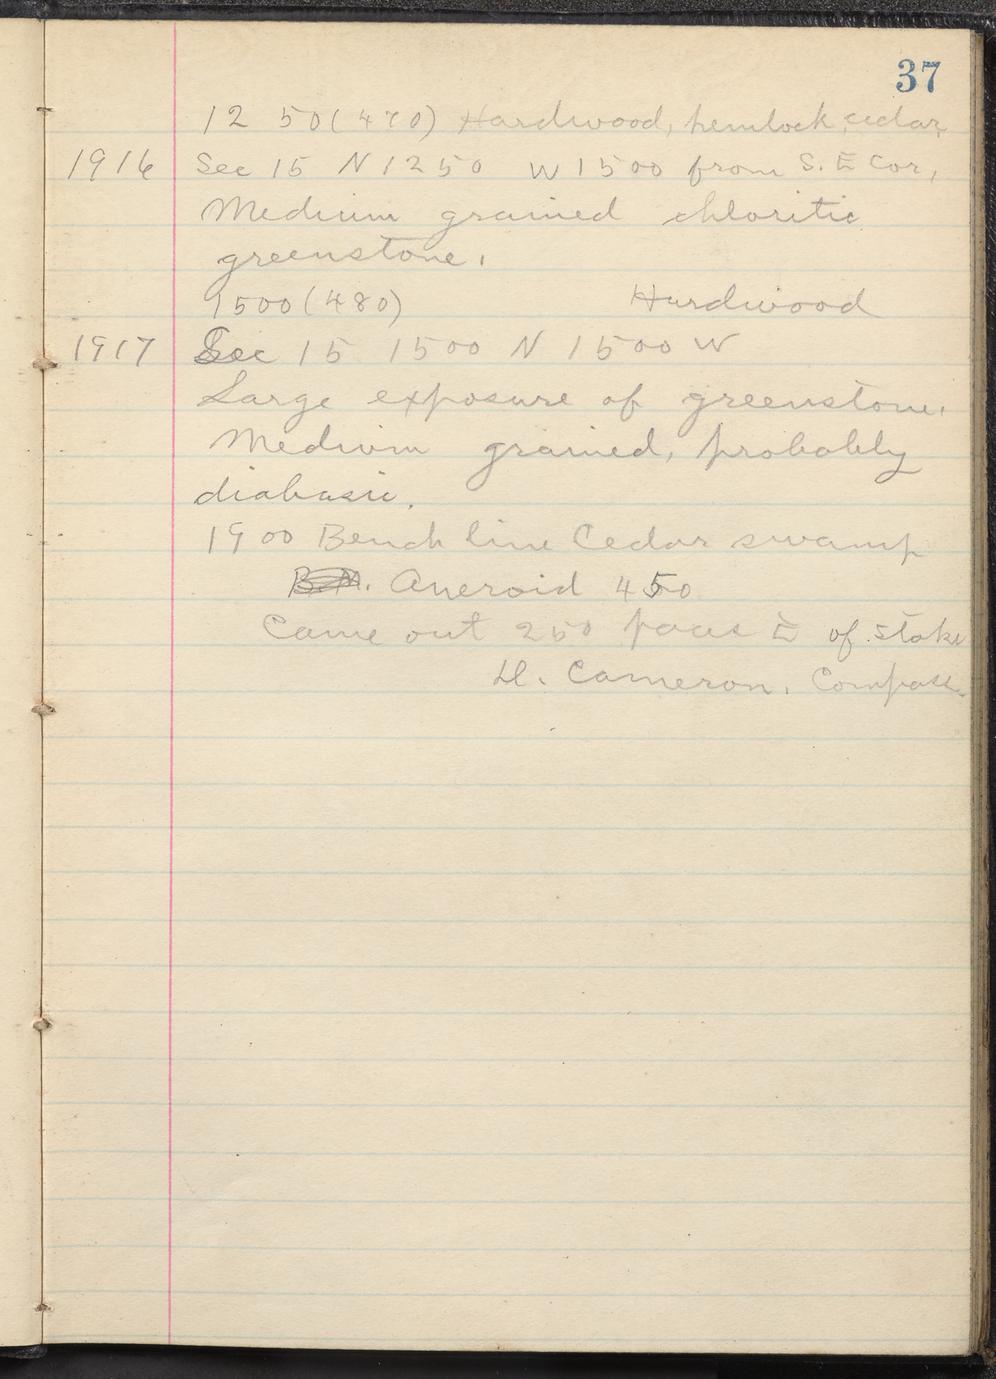 37
12 50 (470) Hardwood, hemlock, cedar,
1916 Sec 15 N 1250 W 1500 from S. E Cor,
Medium grained chloritic
greenstone.
1500 (480) Hardwood
1917 Sec 15 1500 N 1500 W
Large exposure of greenstone.
Medium grained, probably
diabasic.
1900 Bench line Cedar swamp
Aneroid 450
Came out 250 paces E of stake
D. Cameron. Compass.